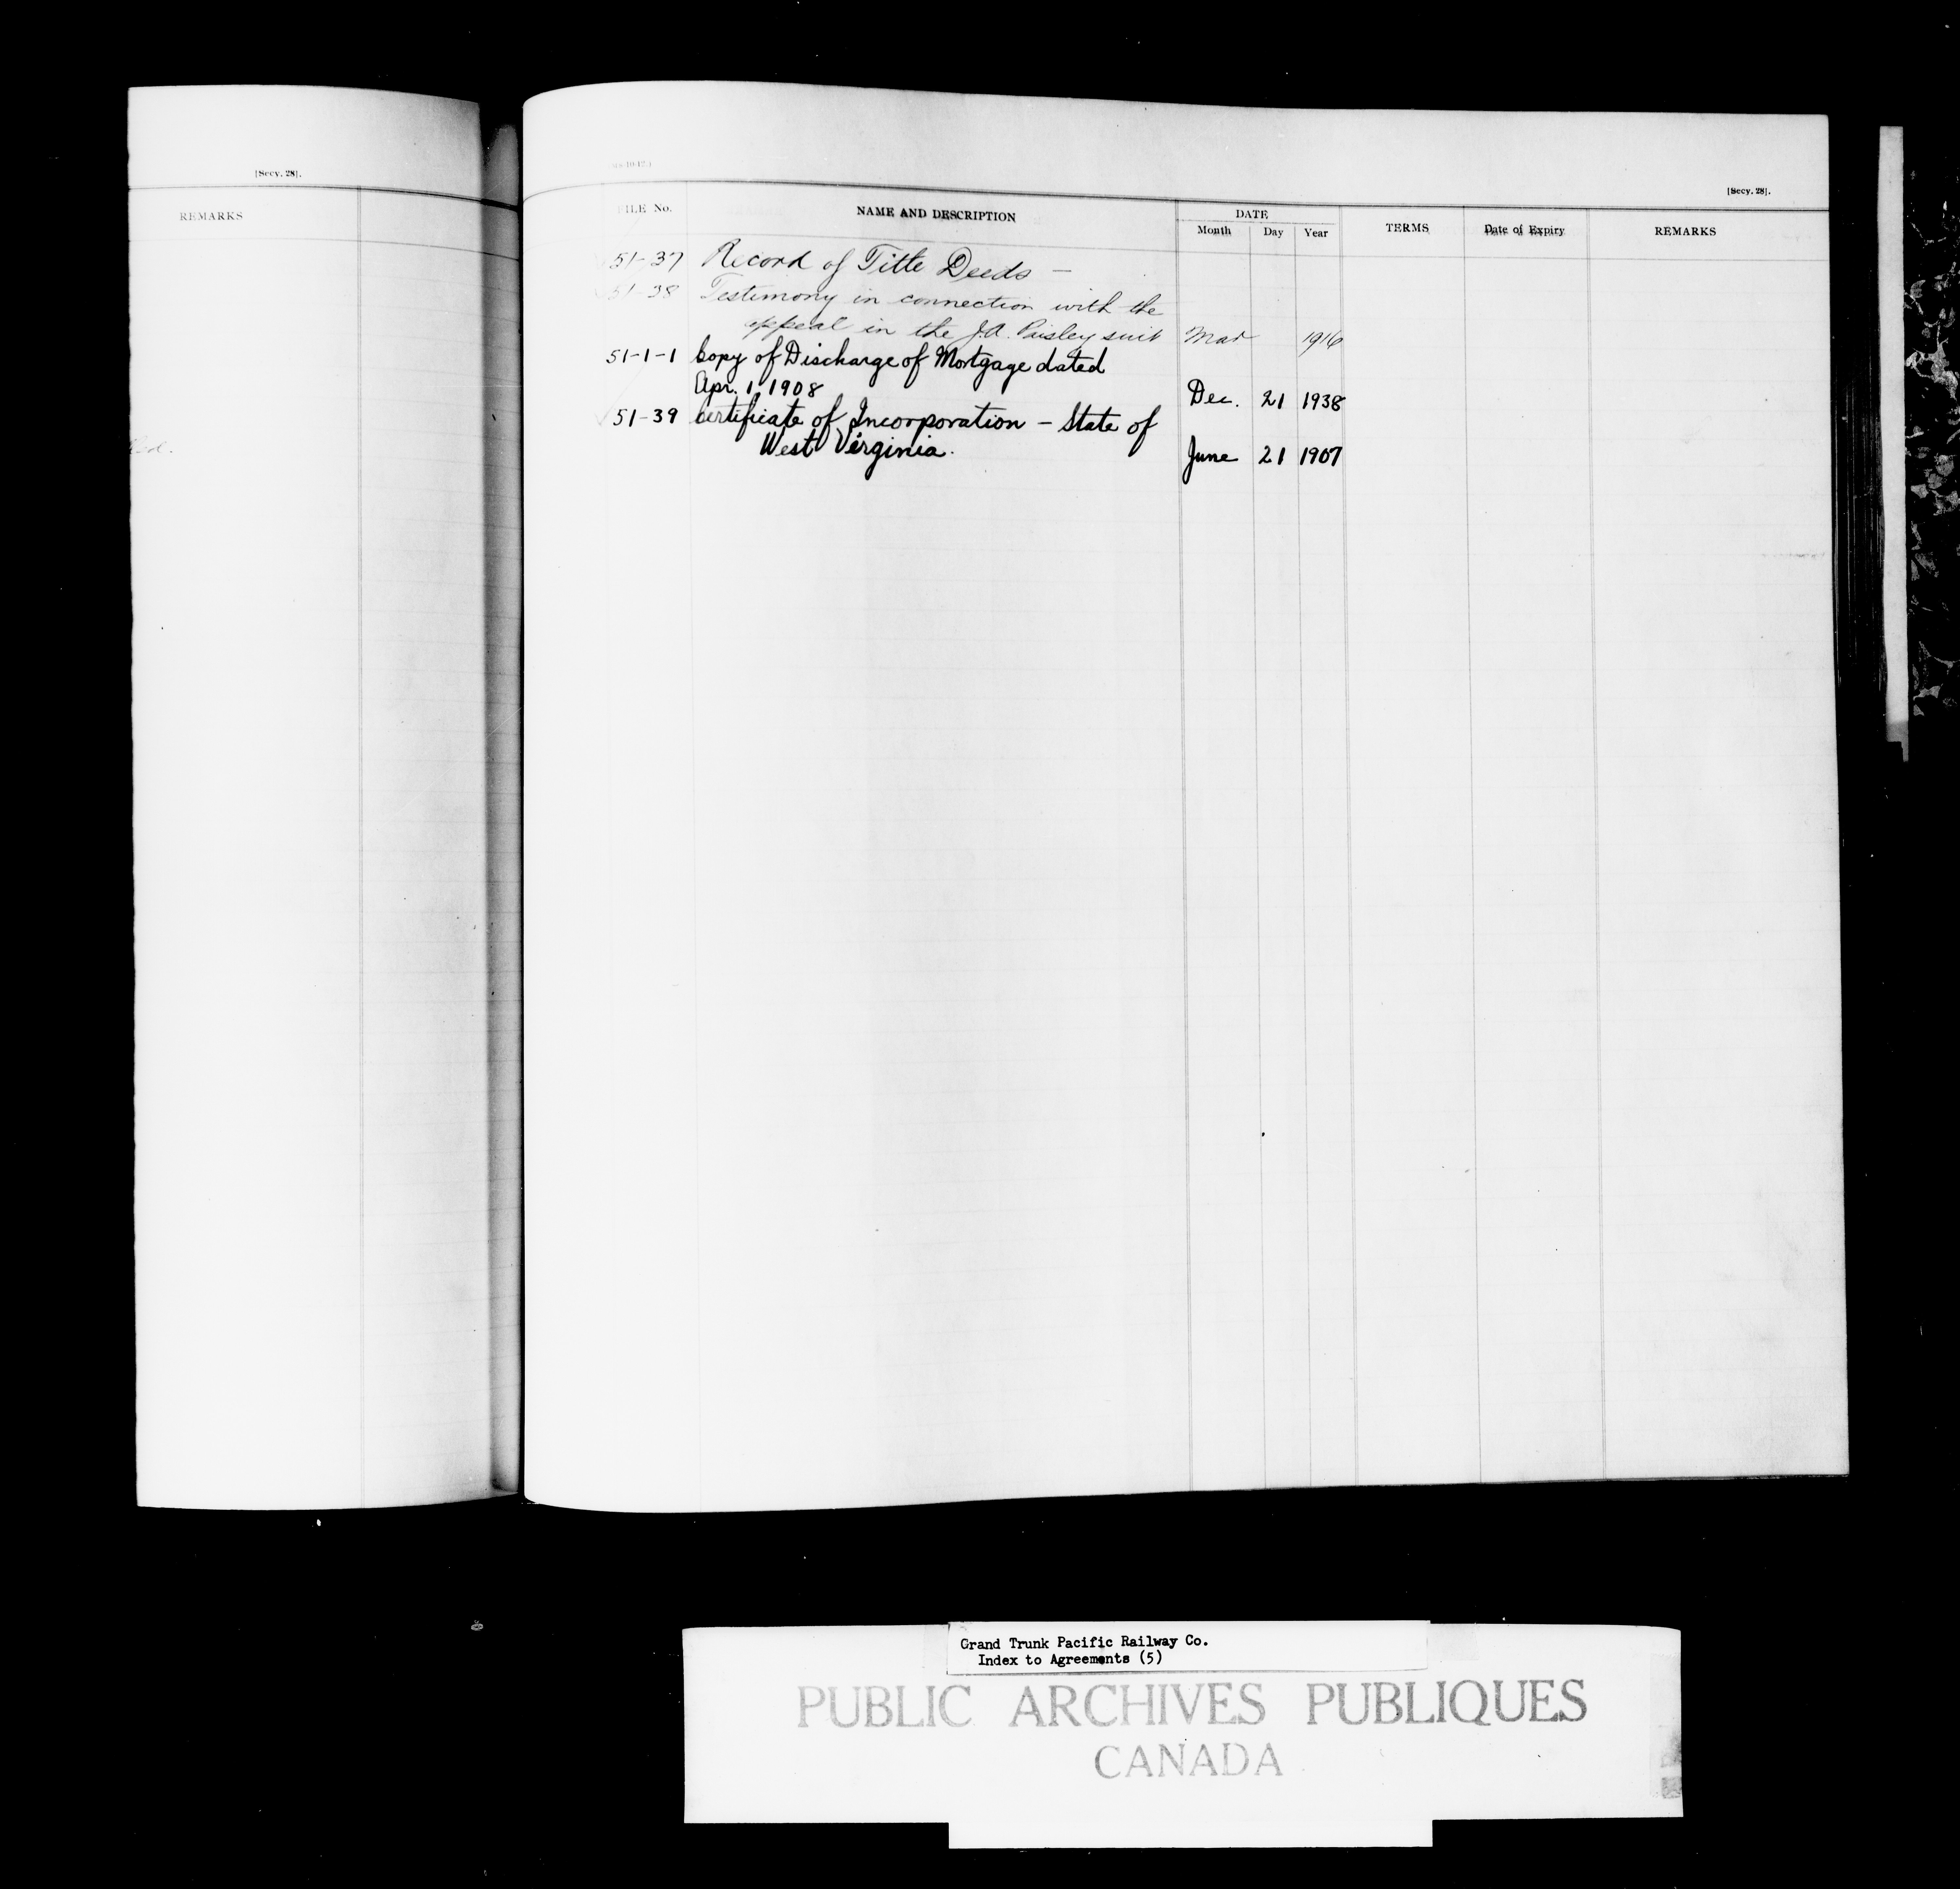 [Secy. 28].
REMARKS
[Secy. 28].
FILE No. NAME AND DESCRIPTION DATE TERMS Date of Expiry REMARKS
Month Day Year
51-37 Record of Title Deeds —
51-38 Testimony in connection with the
appeal in the J.A. Paisley suit Mar 1916
51-1-1 Copy of Discharge of Mortgage dated
Apr. 1, 1908 Dec. 21 1938
51-39 Certificate of Incorporation - State of
West Virginia. June 21 1907
Grand Trunk Pacific Railway Co.
Index to Agreements (5)
PUBLIC ARCHIVES PUBLIQUES
CANADA